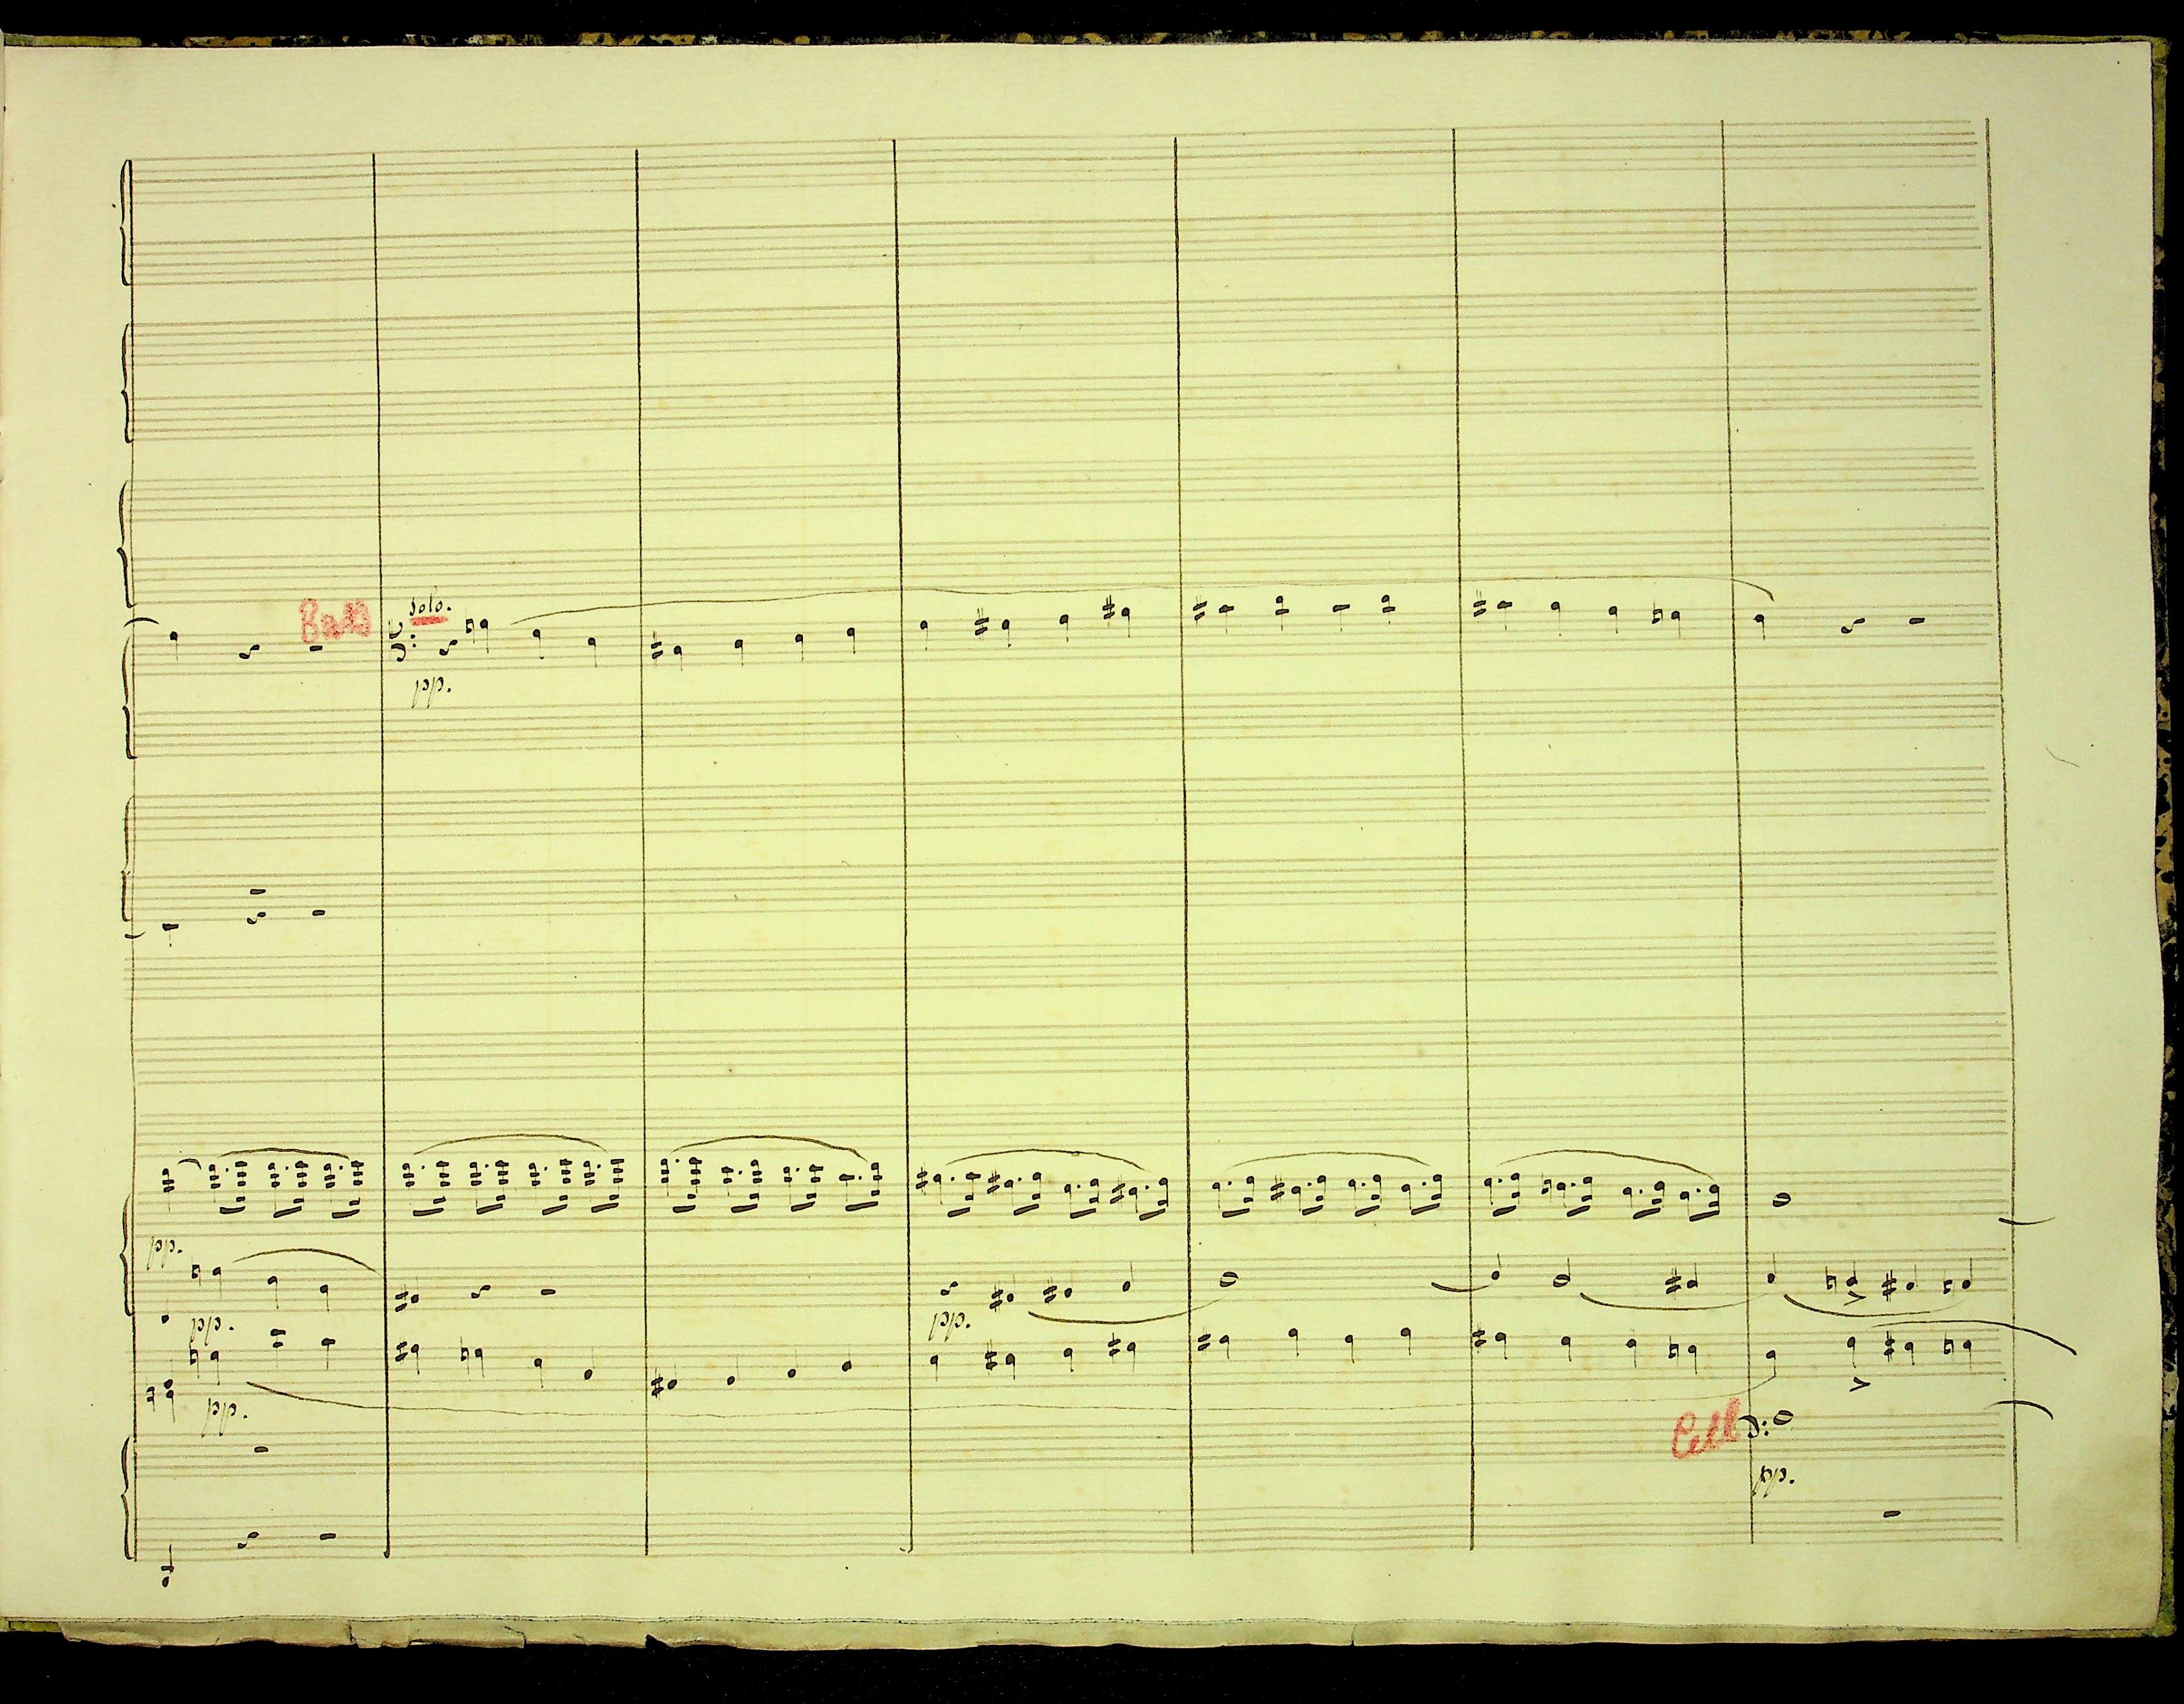 Bass
solo.
pp.
pp.
pp.
pp.
pp.
Cell
pp.